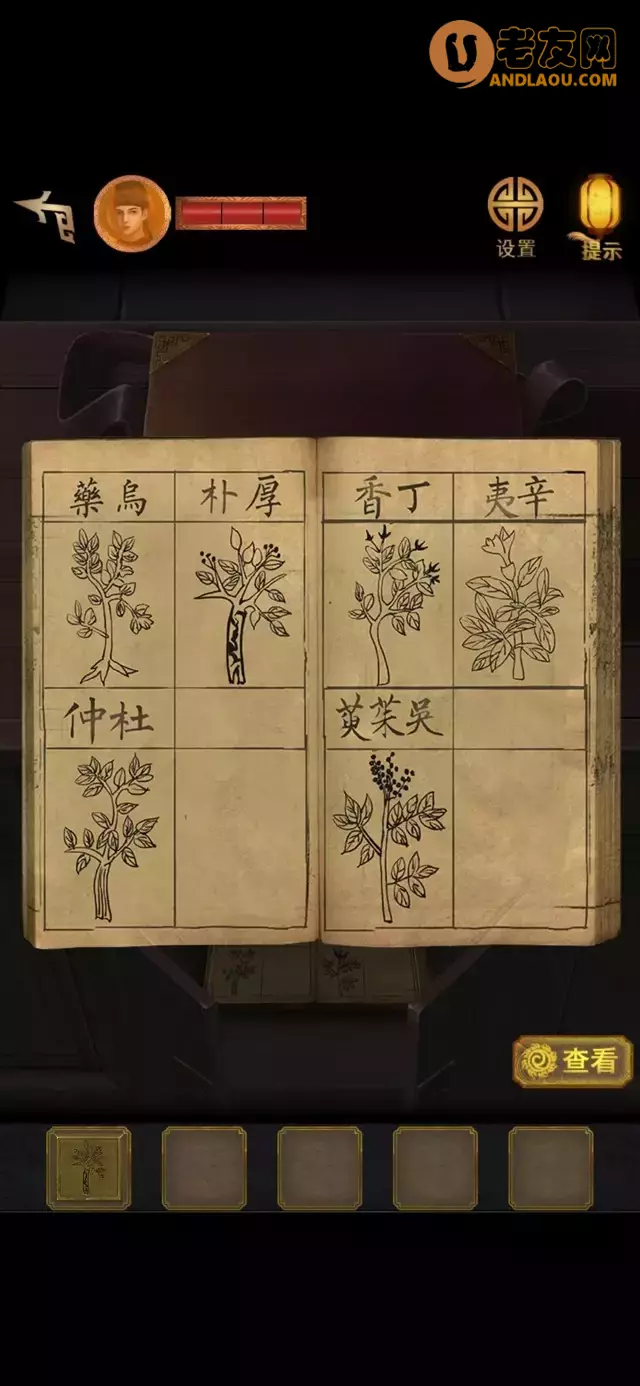 老友网
ANDLAOU.COM
设置
提示
藥烏
朴厚
香丁
夷辛
仲杜
萸茱吳
查看